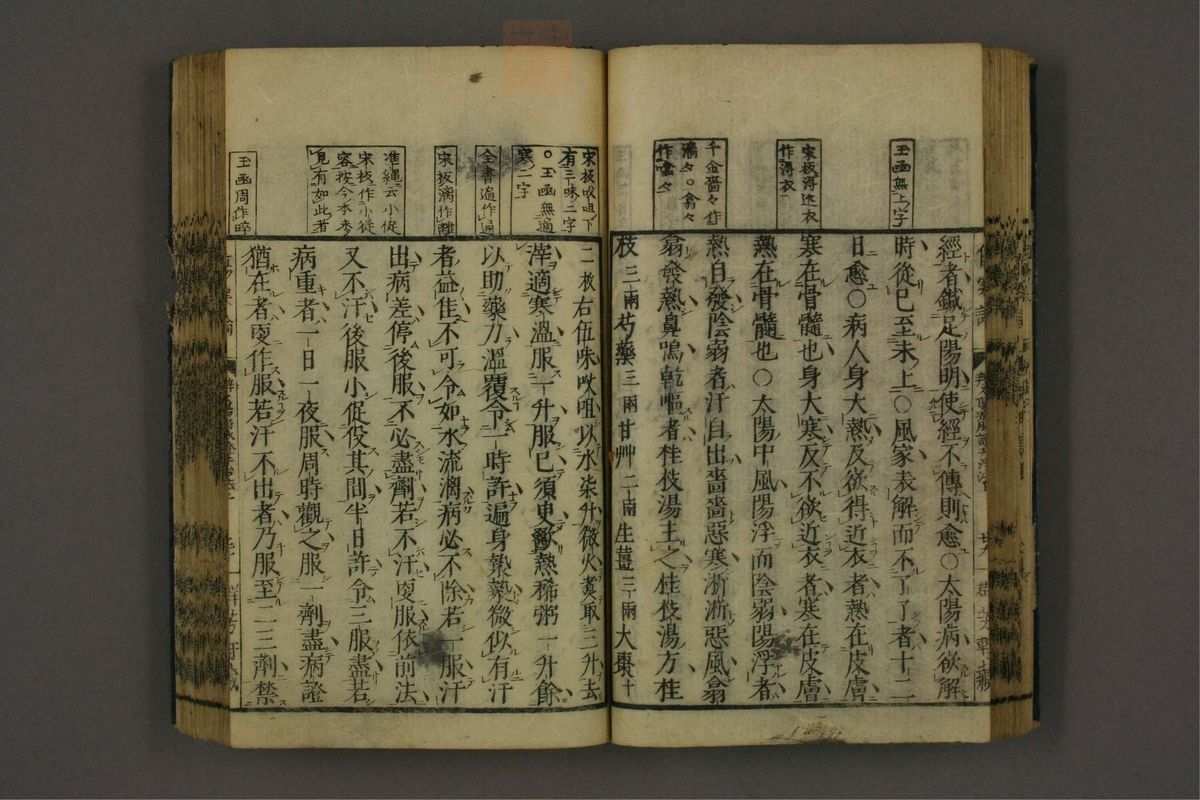 玉函無上字
宋板得近衣
作得衣
千金嗇々作
濇々○翕々
作噏々
經者鍼足陽明使經不傳則愈○太陽病欲解
時從巳至未上○風家表解而不了了者十二
日愈○病人身大熱反欲得近衣者熱在皮膚
寒在骨髓也身大寒反不欲近衣者寒在皮膚
熱在骨髓也○太陽中風陽浮而陰弱陽浮者
熱自發陰弱者汗自出嗇嗇惡寒淅淅惡風翕
翕發熱鼻鳴乾嘔者桂枝湯主之桂枝湯方桂
枝三兩芍藥三兩甘艸二兩生薑三兩大棗十
宋板㕮咀下
有三味二字
○玉函無適
寒二字
全書遍作通
宋板漓作離
准繩云小促
宋板作小從
容按今本李
見有如此者
玉函周作晬
二枚右伍味㕮咀以水柒升微火煑取三升去
滓適寒溫服一升服已須臾歠熱稀粥一升餘
以助藥力溫覆令一時許遍身漐漐微似有汗
者益佳不可令如水流漓病必不除若一服汗
出病差停後服不必盡劑若不汗更服依前法
又不汗後服小促役其間半日許令三服盡若
病重者一日一夜服周時觀之服一劑盡病證
猶在者更作服若汗不出者乃服至二三劑禁